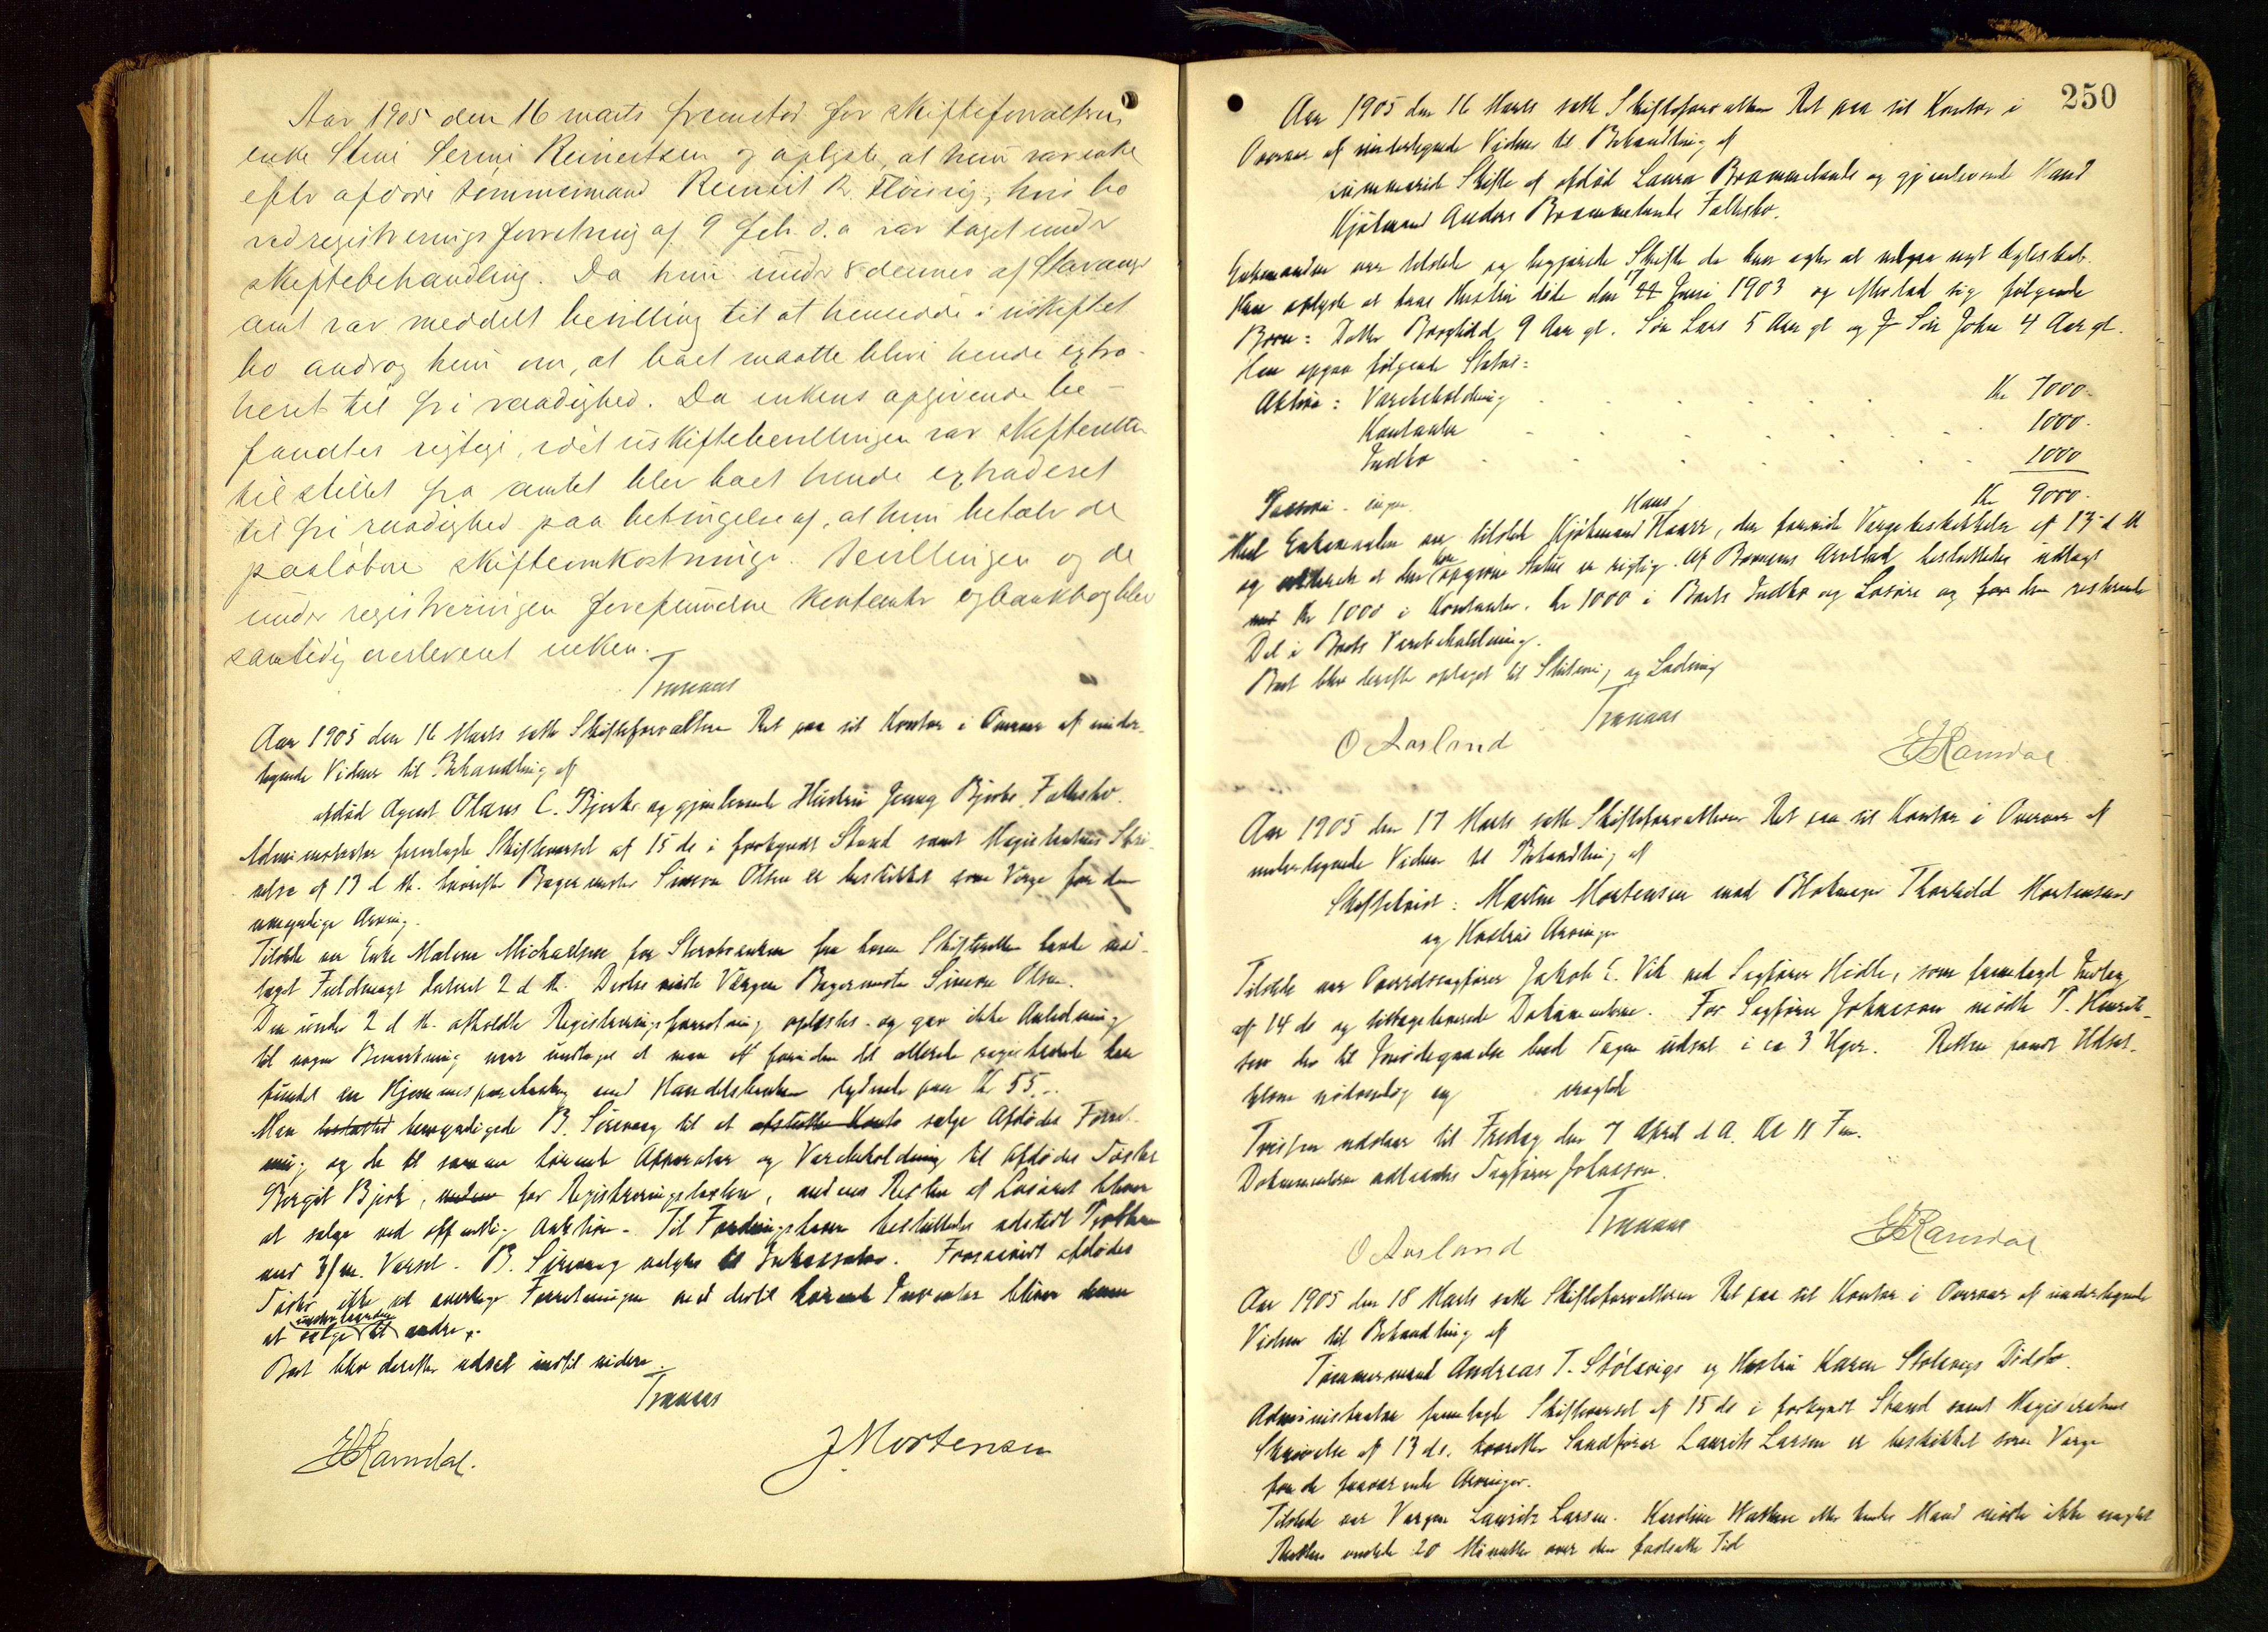 Aar 1905 den 16 marts fremstod for skifteforvalteren
enke Stine Serine Reinertsen og oplyste, at hun var enke
efter afdøde tømmermand Reinert R. Fløisvig, hvis bo
ved registreringsforretning af 9 feb. d.a var taget under
skiftebehandling. Da hun under 8 dennes af Stavanger
amt var meddelt bevilling til at hensidde i uskiftet
bo androg hun om, at boet maatte blive hende extra-
heret til fri raadighed. Da enkens opgivende be-
fandtes rigtige, idet uskiftebevillingen var skifteretten
tilstillet fra amtet blev boet hende extraderet
til fri raadighed paa betingelse af, at hun betaler de
paaløbne skifteomkostninger. Bevillingen og de
under registreringen forefundne kontanter og bankbog blev
samtidig overleveret enken.
Tranaas
Aar 1905 den 16 Marts satte Skifteforvalteren Ret paa sit Kontor i Overvær af under-
tegnede Vidner til Behandling af
afdød Agent Olaus C. Bjerks og gjenlevende Hustru Jenny Bjerks Fællesbo.
Administrator fremlagte Skiftevarsel af 15 ds i forkyndt Stand samt Magistratens Skri-
velse af 13 d M. hvorefter Bagermester Simon Olsen er beskikket som Værge for den
umyndige Arving.
Tilstede var Enke Malene Michaelsen for Skrobranken fra hvem Skifteretten havde mod-
taget Fuldmagt dateret 2 d M. Desuden mødte Værgen Bagermester Simon Olsen.
Den under 2 d M. afholdte Registreringsforretning oplæstes og gav ikke Anledning
til nogen Bemærkning naar undtages at man foruden det allerede registrerede har
fundet en Hjemmesparebankbog med Handelsbanken lydende paa Kr 55...
Man besluttede bemyndigede B. Sirevaag til at afslutte Konto sælge Afdødes Forret-
ning og de til samme hørende Apparater og Varebeholdning til Afdødes Søster
Borgit Bjerk, for Registreringstaxten, medens Resten af Løsøret bliver
at sælge ved offentlig Auktion. Til Fordringshaverne besluttedes udstedt Proklama
med 3/m. Varsel. B. Sirevaag valgtes til Inkassator. Forsaavidt afdødes
Søster ikke vil overtage Forretningen med dertil hørende Inventar bliver denne
at underhaanden sælge til andre.
Boet blev derefter udsat indtil videre.
Tranaas
E Ramdal.
J Mortensen
250
Aar 1905 den 16 Marts satte Skifteforvalteren Ret paa sit Kontor i
Overvær af undertegnede Vidner til Behandling af
summarisk Skifte af afdød Laura Brommelands og gjenlevende Mand
Kjøbmand Anders Brommelands Fællesbo.
Enkemanden var tilstede og begjærede Skifte da han agter at indgaa nyt Ægteskab.
Han oplyste at hans Hustru døde den 17 Juni 1903 og efterlod sig følgende
Børn: Datter Borghild 9 Aar gl. Søn Lars 5 Aar gl og Søn John 4 Aar gl.
Han opgav følgende Status:
Aktiva: Varebeholdning Kr 7000.
Kontanter 1000.
Indbo 1000
Passiva - ingen. Kr 9000.
Med Enkemanden var tilstede Kjøbmand Hans Haarr, der foreviste Værgebeskikkelse af 13 d M
og erklærede at den opgivne Status er rigtig. Af Boets Børnenes Arvelod besluttedes udlagt
Kr 1000 i Kontanter, Kr 1000 i Boets Indbo og Løsøre og for den resterende
Del i Boets Varebeholdning.
Boet blev derefter optaget til Slutning og Lodning
Tranaas
O Aasland
E Ramdal
Aar 1905 den 17 Marts satte Skifteforvalteren Ret paa sit Kontor i Overvær af
undertegnede Vidner til Behandling af
Skiftetvist: Martin Mortensen mod Thorkild Mortensens
og Hustrus Arvinger
Tilstede var Overretssagfører Jakob E. Vik ved Sagfører Hidle, som fremlagde Indlæg
af 14 ds og tilbageleverede Dokumenterne. For Sagfører Johnsson mødte T. Henrik-
sen der til Imødegaaelse bad Sagen udsat i ca 3 Uger. Retten fandt Udsæt-
telsen nødvendig og eragtede
Tvisten udstaar til Fredag den 7 April d A. Kl 11 Fm.
Dokumenterne udlaantes Sagfører Johnsson.
Tranaas
O Aasland
E Ramdal
Aar 1905 den 18 Marts satte Skifteforvalteren Ret paa sit Kontor i Overvær af undertegnede
Vidner til Behandling af
Tømmermand Andreas T. Stølsvigs og Hustru Karen Stølsvigs Dødsbo.
Administrator fremlagte Skiftevarsel af 15 ds i forkyndt Stand samt Magistratens
Skrivelse af 13 ds. hvorefter Sandfører Laurits Larsen er beskikket som Værge
for de fraværende Arvinger.
Tilstede var Værgen Laurits Larsen. Karoline eller hendes Mand mødte ikke uagtet
Retten ventede 20 Minutter over den fastsatte Tid